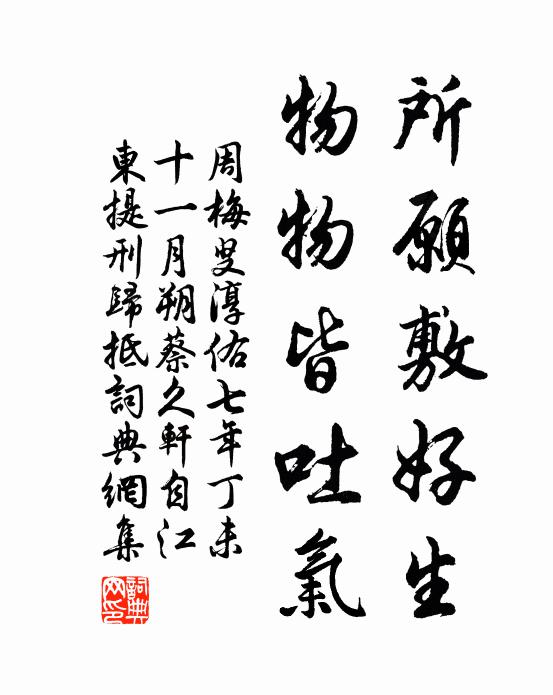 所願敷好生
物物皆吐氣
周梅叟淳佑七年丁未
十一月朔蔡久軒自江
東提刑歸抵詞典網集